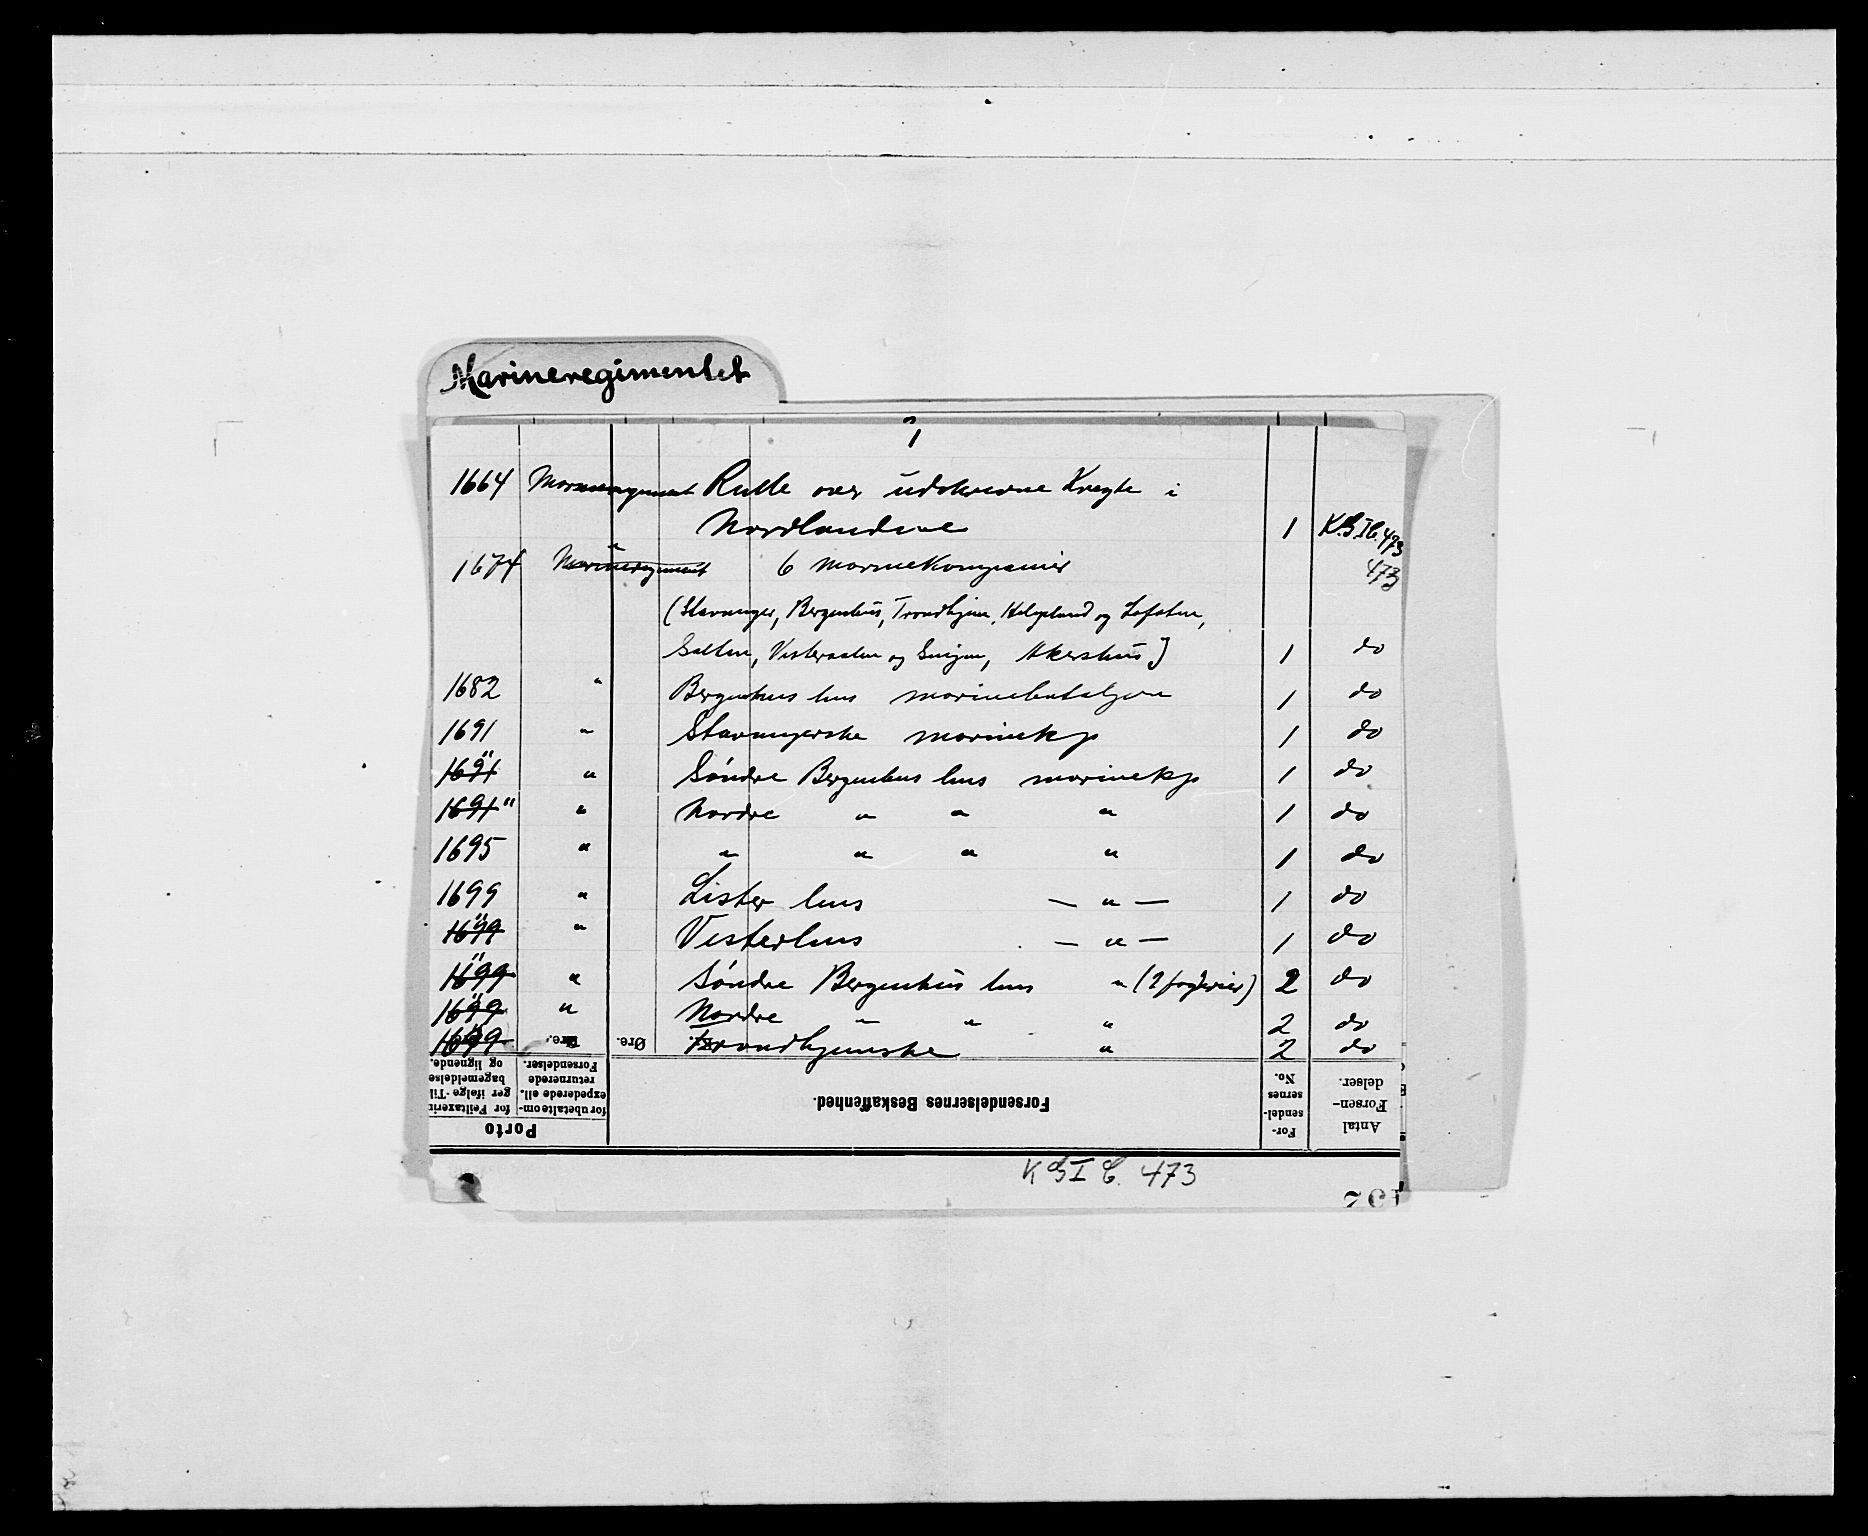 Marineregimentet
1
1664 Marineregiment Rulle over udskrevne Knegte i
Nordlandene 1 K.G.I.C. 473
1674 Marineregiment " 6 Marinekompanier 473
(Stavanger, Bergenhus, Trondhjem, Helgeland og Lofoten,
Salten, Vesteraalen og Senjen, Akershus) 1 do
1682 " Bergenhus lens marinebataljon 1 do
1691 " Stavangerske marinekp 1 do
1691 " " Søndre Bergenhus lens marinekp 1 do
1691 " " Nordre " " " 1 do
1695 " " " " " 1 do
1699 " Lister lens — " — 1 do
1699 " " Vesterlens — " — 1 do
1699 " " Søndre Bergenhus lens " (2 fogderier) 2 do
1699 " " Nordre " " " 2 do
1699 " Øre. Øre. Trondhjemske " 2 do
Porto
for Feiltaxerin
ger ifølge Til
bagemeldelse
og lignende.
for ubetalte om-
expederede ell.
returnerede
Forsendelser.
Forsendelsernes Beskaffenhed.
For-
sendel-
sernes
No.
Antal
Forsen-
delser.
K G I C. 473